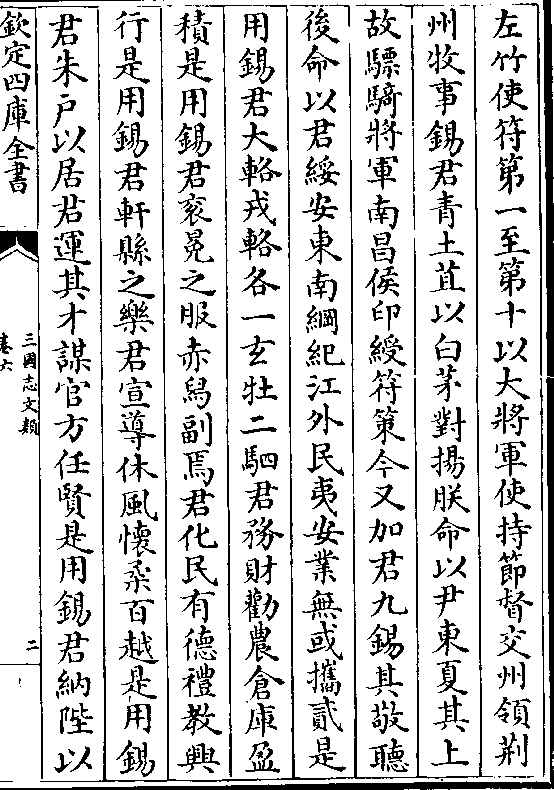 左竹使符第一至第十以大將軍使持節督交州領荆
州牧事錫君青土苴以白茅對揚朕命以尹東夏其上
故驃騎將軍南昌侯印綬符策今又加君九錫其敬聽
後命以君綏安東南綱紀江外民夷安業無或攜貳是
用錫君大輅戎輅各一玄牡二駟君務財勸農倉庫盈
積是用錫君衮冕之服赤舄副焉君化民有德禮教興
行是用錫君軒縣之樂君宣導休風懷柔百越是用錫
君朱户以居君運其才謀官方任賢是用錫君納陛以
欽定四庫全書
三國志文類
卷六
二